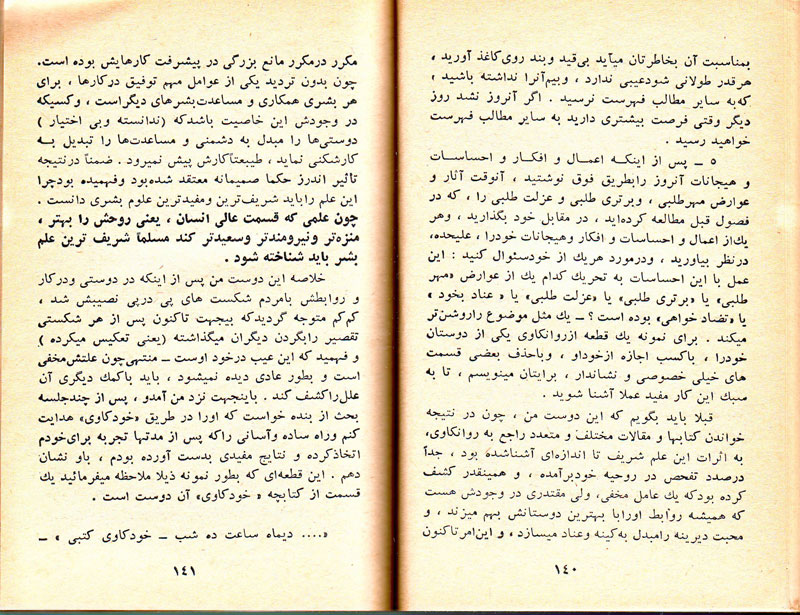 بمناسبت آن بخاطرتان میآید بی‌قید وبند روی‌کاغذ آورید ،
هرقدر طولانی شودعیبی ندارد ، وبیم‌آنرا نداشته باشید ،
که‌به سایر مطالب فهرست نرسید . اگر آنروز نشد روز
دیگر وقتی فرصت بیشتری دارید به سایر مطالب فهرست
خواهید رسید .
۵ ــ پس از اینکه اعمال و افکار و احساسات
و هیجانات آنروز رابطریق فوق نوشتید ، آنوقت آثار و
عوارض مهرطلبی ، وبرتری طلبی و عزلت طلبی را ، که در
فصول قبل مطالعه کرده‌اید ، در مقابل خود بگذارید ، وهر
یك‌از اعمال و احساسات و افکار وهیجانات خودرا ، علیحده،
درنظر بیاورید ، ودرمورد هریك از خودسئوال کنید : این
عمل با این احساسات به تحریك کدام یك از عوارض «مهر
طلبی» یا «برتری طلبی» یا «عزلت طلبی» یا « عناد بخود »
یا «تضاد خواهی» بوده است ؟ ــ یك مثل موضوع راروشن‌تر
میکند . برای نمونه یك قطعه ازروانکاوی یکی از دوستان
خودرا ، باکسب اجازه ازخوداو ، وباحذف بعضی قسمت
های خیلی خصوصی و نشاندار ، برایتان مینویسم ، تا به
سبك این کار مفید عملا آشنا شوید .
قبلا باید بگویم که این دوست من ، چون در نتیجه
خواندن کتابها و مقالات مختلف و متعدد راجع به روانکاوی،
به اثرات این علم شریف تا اندازه‌ای آشناشده بود ، جدآ
درصدد تفحص در روحیه خودبرآمده ، و همینقدر کشف
کرده بودکه یك عامل مخفی، ولی مقتدری در وجودش هست
که همیشه روابط اورابا بهترین دوستانش بهم میزند ، و
محبت دیرینه رامبدل به‌کینه وعناد میسازد ، و این‌امر تاکنون
۱۴۰
مکرر درمکرر مانع بزرگی در پیشرفت کارهایش بوده است.
چون بدون تردید یکی از عوامل مهم توفیق درکارها ، برای
هر بشری همکاری و مساعدت‌بشرهای دیگراست ، وکسیکه
در وجودش این خاصیت باشدکه (ندانسته وبی اختیار )
دوستی‌ها را مبدل به دشمنی و مساعدت‌ها را تبدیل به
کارشکنی نماید ، طبیعتآکارش پیش نمیرود . ضمنآ درنتیجه
تاثیر اندرز حکما صمیمانه معتقد شده‌بود وفهمیده بودچرا
این علم راباید شریف‌ترین ومفیدترین علوم بشری دانست .
چون علمی که قسمت عالی انسان ، یعنی روحش را بهتر ،
منزه‌تر ونیرومندتر وسعیدتر کند مسلمآ شریف ترین علم
بشر باید شناخته شود .
خلاصه این دوست من پس از اینکه در دوستی ودرکار
و روابطش بامردم شکست های پی درپی نصیبش شد ،
کم‌کم متوجه گردیدکه بیجهت تاکنون پس از هر شکستی
تقصیر رابگردن دیگران میگذاشته (یعنی تعکیس میکرده )
و فهمید که این عیب درخود اوست ــ منتهی‌چون علتش‌مخفی
است و بطور عادی دیده نمیشود ، باید باکمك دیگری آن
علل‌راکشف کند . باینجهت نزد من آمدو ، پس از چندجلسه
بحث از بنده خواست که اورا در طریق «خودکاوی» هدایت
کنم وراه ساده وآسانی راکه پس از مدتها تجربه برای‌خودم
اتخاذکرده و نتایج مفیدی بدست آورده بودم ، باو نشان
دهم . این قطعه‌ای که بطور نمونه ذیلا ملاحظه میفرمائید یك
قسمت از کتابچه « خودکاوی» آن دوست است .
«.... دیماه ساعت ده شب ــ خودکاوی کتبی » ــ
۱۴۱